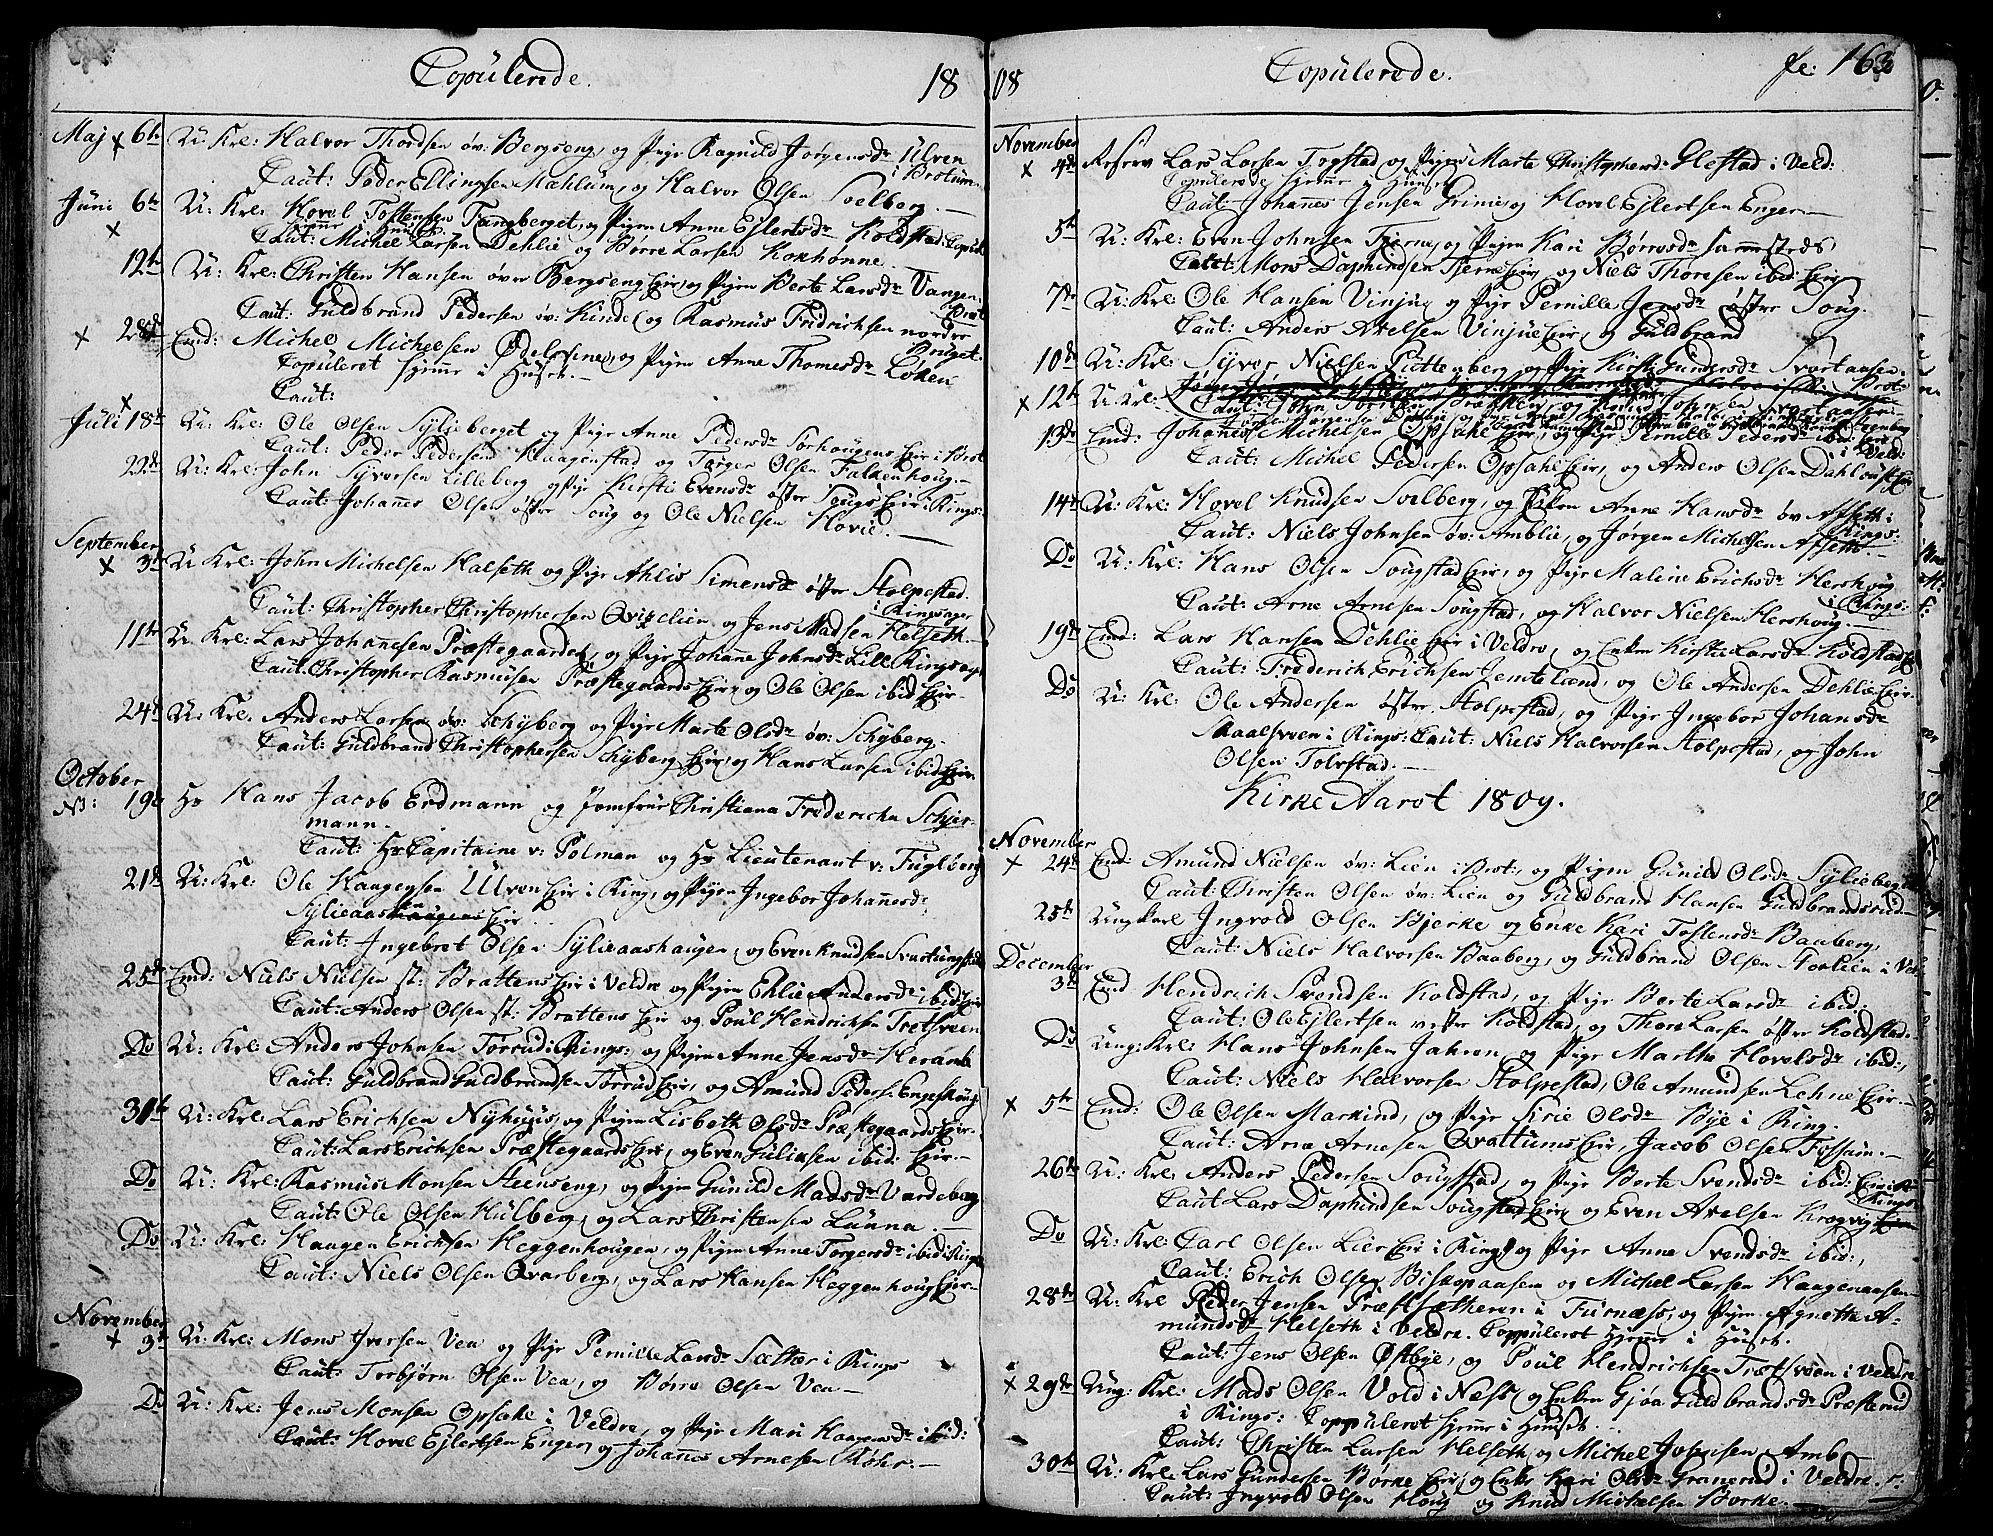 Copulerede. 18
Maj 6te U: Krl: Halvor Thordsen öv: Bergseng, og Pige Ragnild Jørgensdr Ulven
i Brotum
Caut: Peder Ellingsen Mæhlum, og Halvor Olsen Soelberg.
Juni 6te U: Krl: Hovel Tostensen Tangberget, og Pigen Anne Ejlertsdr Koldstad: Copul:
hjemme i Huset
Caut: Michel Larsen Dehlie og Börre Larsen
12te U: Krl: Christen Hansen övre Bergseng Eir, og Pigen Berte Larsdr Vangen
i Brot
Caut: Guldbrand Pedersen öv: Kinde og Rasmus Fridrichsen nordre
Bruget.
28de Emd: Michel Michelsen og Pigen Anne Thomesdr Løken
Copuleret hjemme i Huset.
Caut:
Juli 18de U: Krl: Ole Olsen Sylieberget og Pige Anne Pedersdr Sørhougens Eir i Brot
Caut: Peder Pedersen Haagenstad og Targer Olsen Falkenhoug.
22de U: Krl: John Syversen Lilleberg og Pige Kirsti Evensdr östre Sougs Eir: i Rings:
Caut: Johannes Olsen östre Soug og Ole Nielsen Hovie.
September 3de U: Krl: John Michelsen Halseth og Pige Ahlis Simensdr östre Stolpestad.
i Ringsager
Caut: Christopher Christophersen og Jens Madsen Helseth.
11te U: Krl: Lars Johannesen Præstegaarden, og Pige Johanne Johnsdr Lille Ringsager
Caut: Christopher Rasmusen Præstegaards Eir, og Ole Olsen ibid Eir.
24de U: Krl: Anders Larsen öv: Schyberg og Pige Marte Olsdr öv: Schyberg.
Caut: Guldbrand Christophersen Schyberg Eir, og Hans Larsen ibid Eir
October
NB: 19de Hr Hans Jacob Erdmann og Jomfrue Christiana Fridericha Schjer-
mann.
Caut: Hr Capitaine v: Polman og Hr Lieutenant v: Fuglberg
21de U: Krl: Ole Haagensen Ulven Eir i Ring, og Pigen Ingebor Johannesdr
Sylieaas Eir
Caut: Ingebret Olsen Sylieaashaugen, og Even Knudsen
25de Emd: Niels Nielsen st: Brattens Eir i Veldre og Pigen Ehlie Andersdr ibid Eir
Caut: Anders Olsen st: Brattens Eir og Poul Hendrichsen Tretsveen
Do U: Krl: Anders Johnsen Torrud i Rings: og Pigen Anne Jensdr Heramb
Caut: Guldbrand Guldbrandsen Torrud Eir, og Amund Peders:
31te U: Krl: Lars Erichsen Nyhuus, og Pigen Lisbeth Olsdr Præstegaards Eir.
Caut: Lars Erichsen Præstegaards Eir, og Even Gulicksen ibid: Eir.
Do U: Krl: Rasmus Monsen Steenseng, og Pigen Gunild Madsdr Vardeberg
Caut: Ole Olsen Hulberg, og Lars Christensen Lunna.
Do U: Krl: Haagen Erichsen Heggenhougen, og Pigen Anne Torgersdr ibid: i Rings
Caut: Niels Olsen Qvarberg, og Lars Hansen Heggenhoug Eir.
November
3de U: Krl: Mons Iversen Vea og Pige Pernille Larsdr Sætter i Rings
Caut: Torbjørn Olsen Vea, og Börre Olsen Vea
Do U: Krl: Jens Monsen Opsahe i Veldre, og Pige Mari Haagensdr ibid:
Caut: Hovel Ejlertsen Enger, og Johannes Arnesen Röhr.
08 Copulerede. 163
November
4de Lars Larsen Togstad, og Pigen Marte Christophersdr Glestad i Veld:
Copulerede hjemme i Huset
Caut: Johannes Jensen Grime, og Hovel Ejlertsen Enger
5te U: Krl: Even Johnsen Tjerne, og Pigen Kari Börresdr sammesteds
Caut: Mons Daphindsen Tjerne Eir og Niels Thoresen ibid: Eir
7de U: Krl: Ole Hansen Vinjue og Pige Pernille Jensdr östre Soug.
Caut: Anders Axelsen Vinjue Eir, og Guldbrand
10de U: Krl: Syver Nielsen Putten berg, og Pige Kirsti Gundersdr Svartaasen.
i Brot:
12te U: Krl:
13de Emd: Johannes Michelsen Opsahe Eir, og Pige Pernille Pedersdr ibid: Eir
i Veld:
Caut: Michel Pedersen Opsahe Eir, og Anders Olsen
14de U: Krl: Hovel Knudsen Soelberg, og Enken Anne Hansdr öv: Afseth i
Rings:
Caut: Niels Johnsen öv: Amblie, og Jørgen Michelsen Afseth
Do U: Krl: Hans Olsen Sougstad Eir, og Pige Maline Erichsdr Hershoug
i Rings:
Caut: Arne Arnesen Sougstad, og Halvor Nielsen Hershoug.
19de Emd: Lars Hansen Dehlie Eir i Veldre, og Enken Kirstie Larsdr Koldstad Eir
Caut: Friderich Erichsen Jemtelund, og Ole Andersen Dehlie Eir.
Do U: Krl: Ole Andersen östre Stolpestad, og Pige Ingebor Johansdr
Maalsveen i Rings: Caut: Niels Halvorsen Stolpestad, og John
Olsen Tolvstad.
Kirke Aaret 1809.
November
24de Emd: Amund Nielsen öv: Lien i Brot: og Pigen Gunild Olsdr Syliebergs
Caut: Christen Olsen öv: Lien og Guldbrand Hansen Guldbrandsrud
25te Ungkarl Ingvold Olsen Bjerke og Enke Kari Tostensdr Bauberg,
Caut: Niels Halvorsen Baaberg, og Guldbrand Olsen i Vel
December
3de Emd Hendrich Svendsen Koldstad, og Pige Berte Larsdr ibid:
Caut: Ole Ejlertsen vestre Koldstad, og Thore Larsen östre Koldstad.
Do Ung: Krl: Hans Johnsen Jahren, og Pige Marthe Hovelsdr ibid:,
Caut: Niels Halvorsen Stolpestad, Ole Amundsen Lehne Eir.
5te Emd: Ole Olsen Markind, og Pige Sirie Olsdr Bye i Ring.
Caut: Arne Arnesen Qvattums Eir, Jacob Olsen Fossum.
26de U: Krl: Anders Pedersen Sougstad, og Pige Berte Svendsdr ibid: Eir: i
Rings
Caut Lars Daphindsen Sougstad Eir, og Even Axelsen Krogvig
Do U: Krl: Carl Olsen Lier Eir i Rings og Pige Anne Svendsdr ibid:,
Caut: Erich Olsen Biskopaasen og Michel Larsen Haagenaasen
28de U: Krl Peder Jensen Præstsætheren i Furnæss, og Pigen Agnethe A-
mundsdr Helseth i Veldre. Coppuleret hjemme i Huset.
Caut: Jens Olsen Östbye, og Poul Hendrichsen Trætsveen i Veldre
29de Ung: Krl: Mads Olsen Vold i Næss, og Enken Gjøa Guldbrandsdr Præsterud
i Rings: Coppuleret hjemme i Huuset.
Caut: Christen Larsen Helseth, og Michel Johnsen Amb
30te U: Krl: Lars Gundersen Börke Eir, og Enke Kari Olsdr Granerud i Veldre.
Caut: Ingvold Olsen Houg og Knud Michelsen Börke.